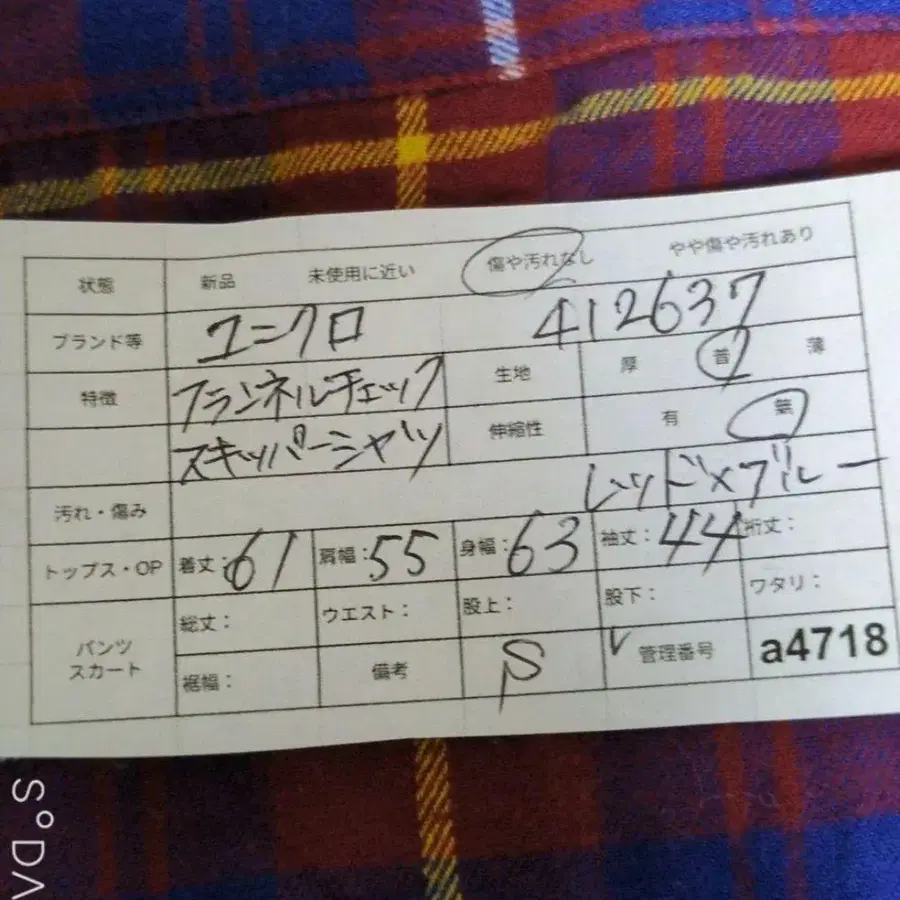 状態 新品 未使用に近い 傷や汚れなし やや傷や汚れあり
ブランド等 ユニクロ 412637
特徴 フランネルチェック 生地 厚 普 薄
スキッパーシャツ 伸縮性 有 無
汚れ・傷み レッド×ブルー
トップス・OP 着丈：61 肩幅：55 身幅：63 袖丈：44 裄丈：
パンツ スカート 総丈： ウエスト： 股上： 股下： ワタリ：
裾幅： 備考 S 管理番号 a4718